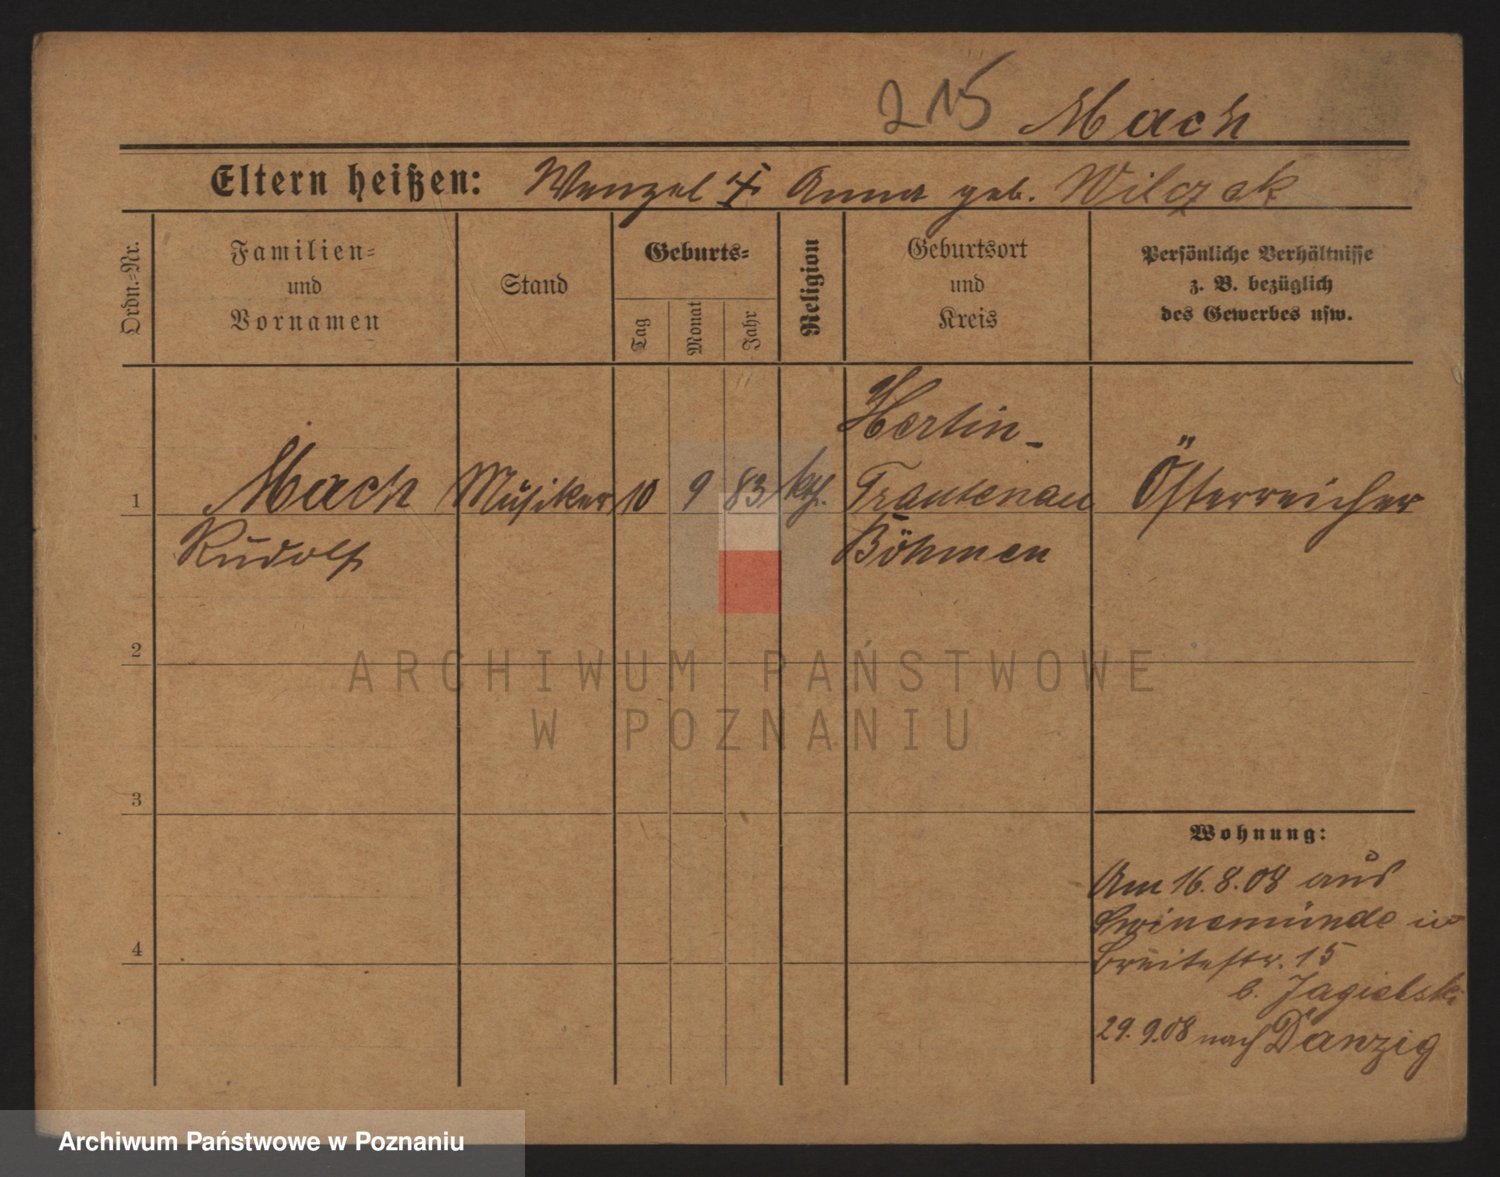 215 Mach
Eltern heißen: Wenzel † Anna geb. Wilczak
Ordn.-Nr.
Familien-
und
Vornamen
Stand
Geburts-
Tag
Monat
Jahr
Religion
Geburtsort
und
Kreis
Persönliche Verhältnisse
z. B. bezüglich
des Gewerbes usw.
Hertin-
1 Mach Musiker 10 9 83 kth. Trautenau Österreicher
Rudolf Böhmen
2
ARCHIWUM PAŃSTWOWE
W POZNANIU
3
Wohnung:
Am 16.8.08 aus
Swinemünde in
4 Breitestr. 15
b. Jagielski
29.9.08 nach Danzig
Archiwum Państwowe w Poznaniu